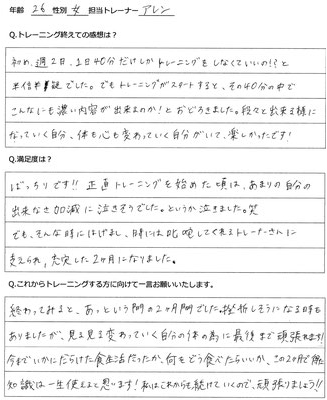 年齢 26 性別 女 担当トレーナー アレン
Q.トレーニング終えての感想は？
初め、週2日、1日40分だけしかトレーニングをしなくていいの!?と
半信半疑でした。でもトレーニングがスタートすると、その40分の中で
こんなにも濃い内容が出来るのか!とおどろきました。段々と出来る様に
なっていく自分、体も心も変わっていく自分がいて、楽しかったです!
Q.満足度は？
ばっちりです!! 正直トレーニングを始めた頃は、あまりの自分の
出来なさ加減に泣きそうでした。というか泣きました。笑
でも、そんな時にはげまし、時には叱咤してくれるトレーナーさんに
支えられ、充実した2ヶ月になりました。
Q.これからトレーニングする方に向けて一言お願いいたします。
終わってみると、あっという間の2ヶ月間でした。挫折しそうになる時も
ありましたが、見る見る変わっていく自分の体の為に最後まで頑張れます!
今までいかにだらけた食生活だったか、何をどう食べたらいいか、この2ヶ月で得た
知識は一生使えると思います! 私はこれからも続けていくので、頑張りましょう!!